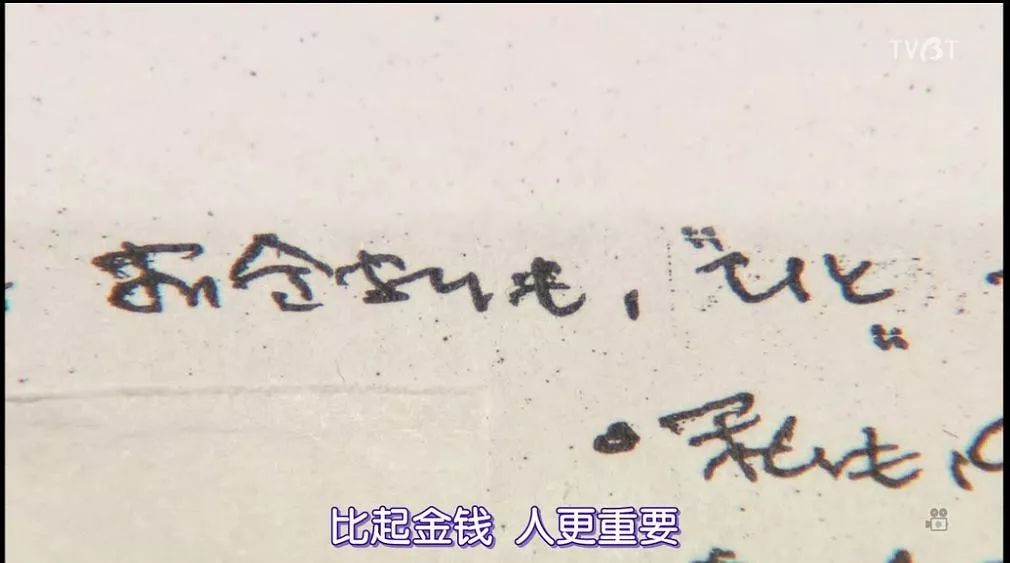 TVBT
お金よりも，“ひと”
比起金钱 人更重要